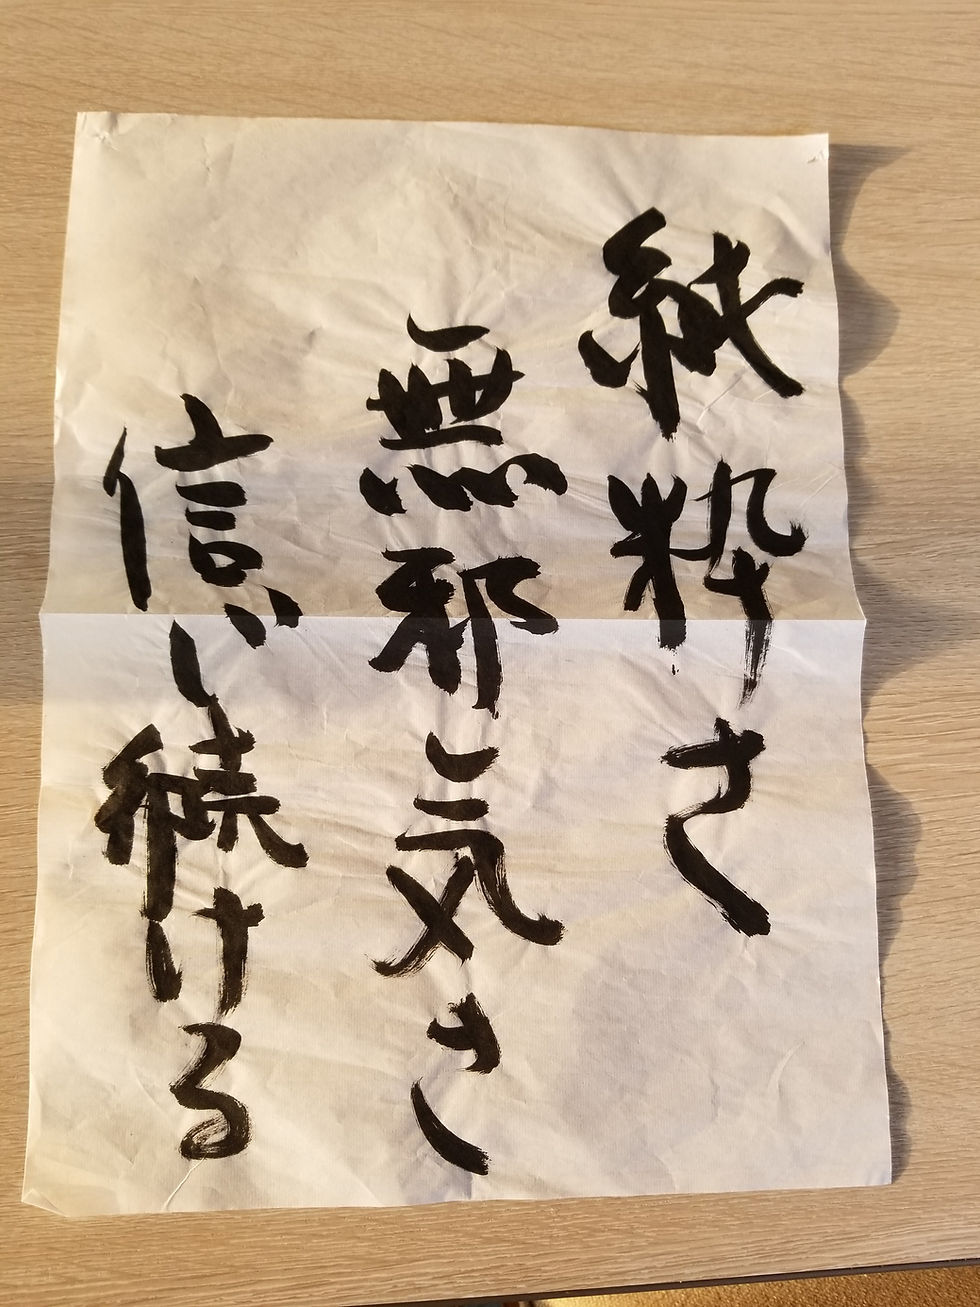 純粋さ
無邪気さ
信じ続ける